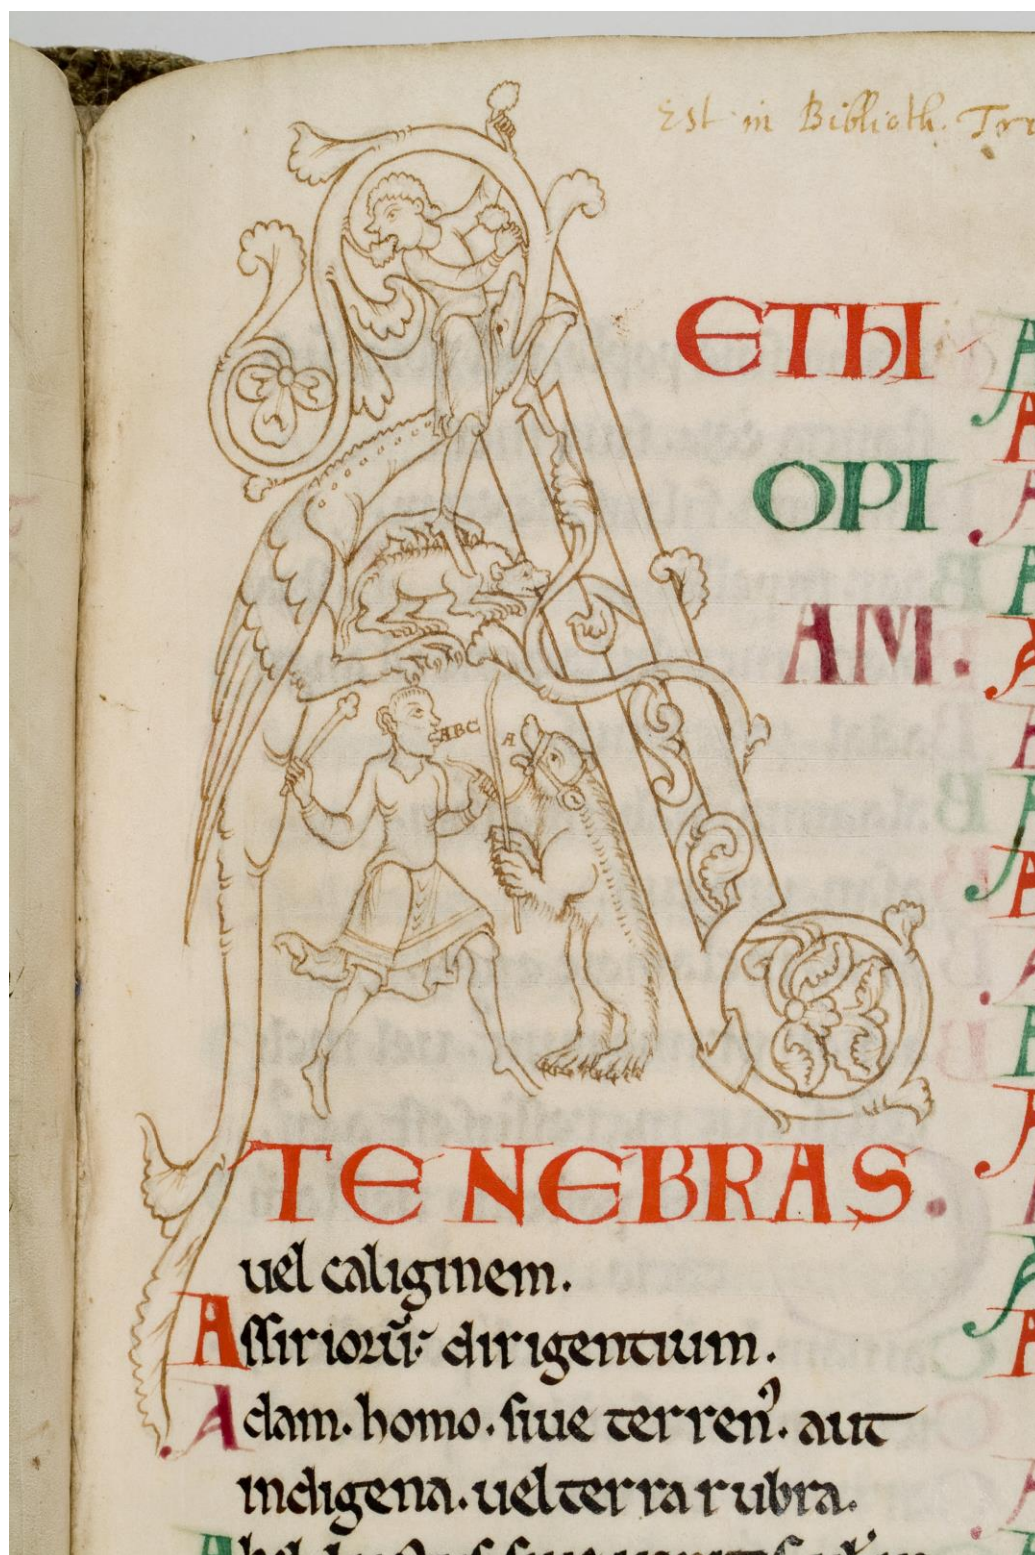 Est in Biblioth.
ABC A
ETHI
OPI
AM.
TENEBRAS.
uel caliginem.
Assiriorū· dirigentium.
Adam· homo· siue terren᾽· aut
indigena· uel terra rubra.